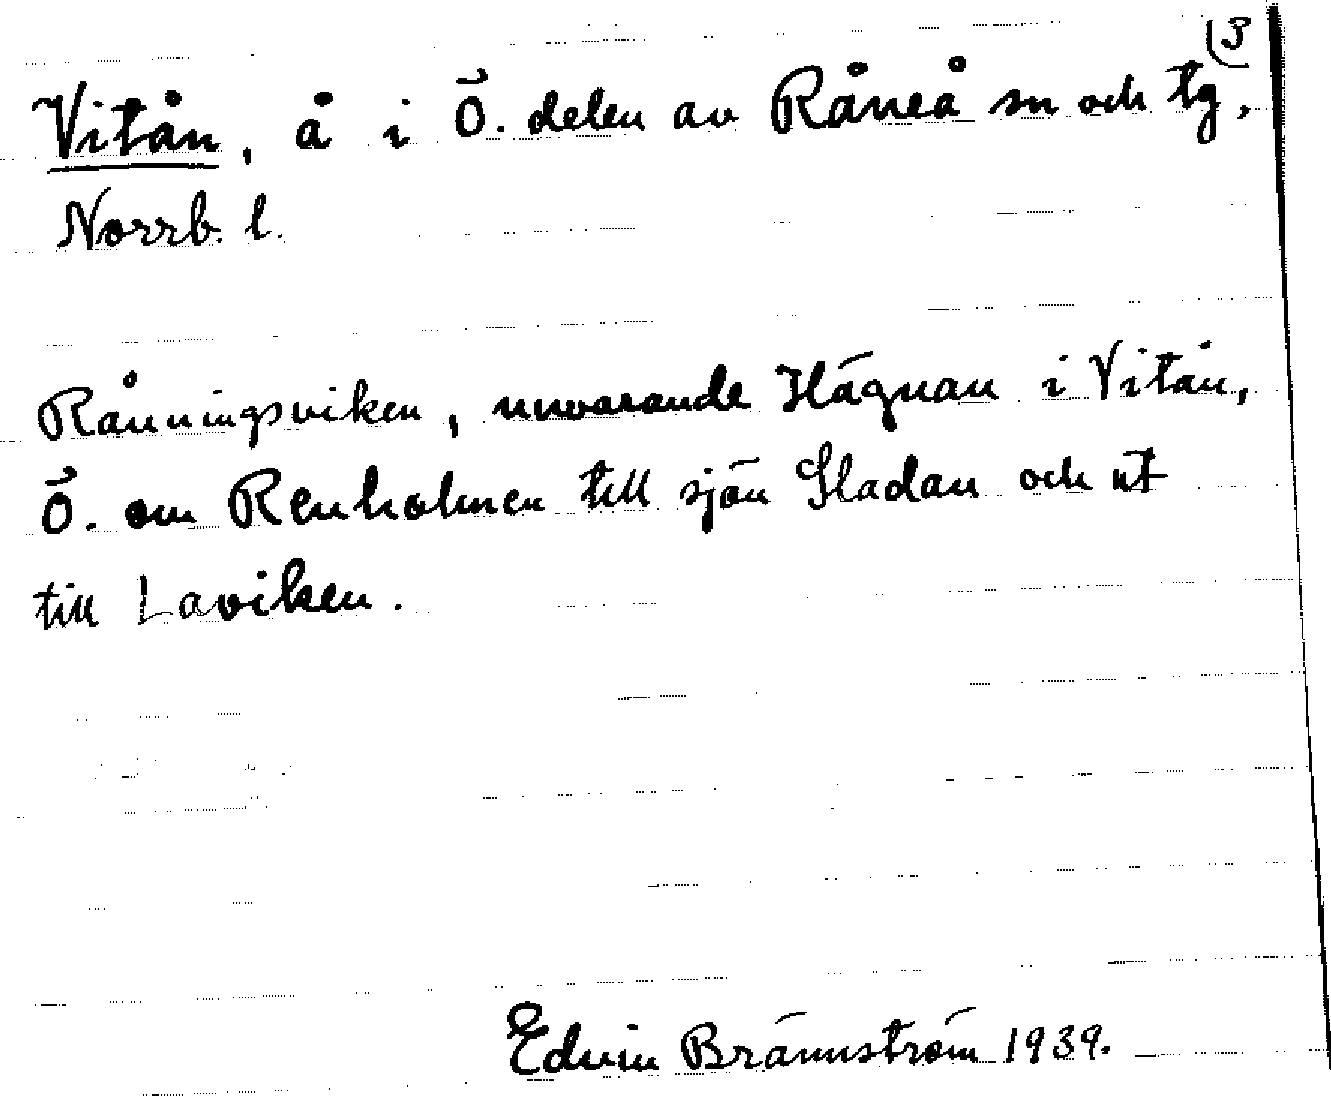 (3
Vitån, å i Ö. delen av Råneå sn och tg,
Norrb. l.
Rånningsviken, nuvarande Hägnan i Vitån,
Ö. om Renholmen till sjön Sladan och ut
till Laviken.
Edvin Brännström 1939.